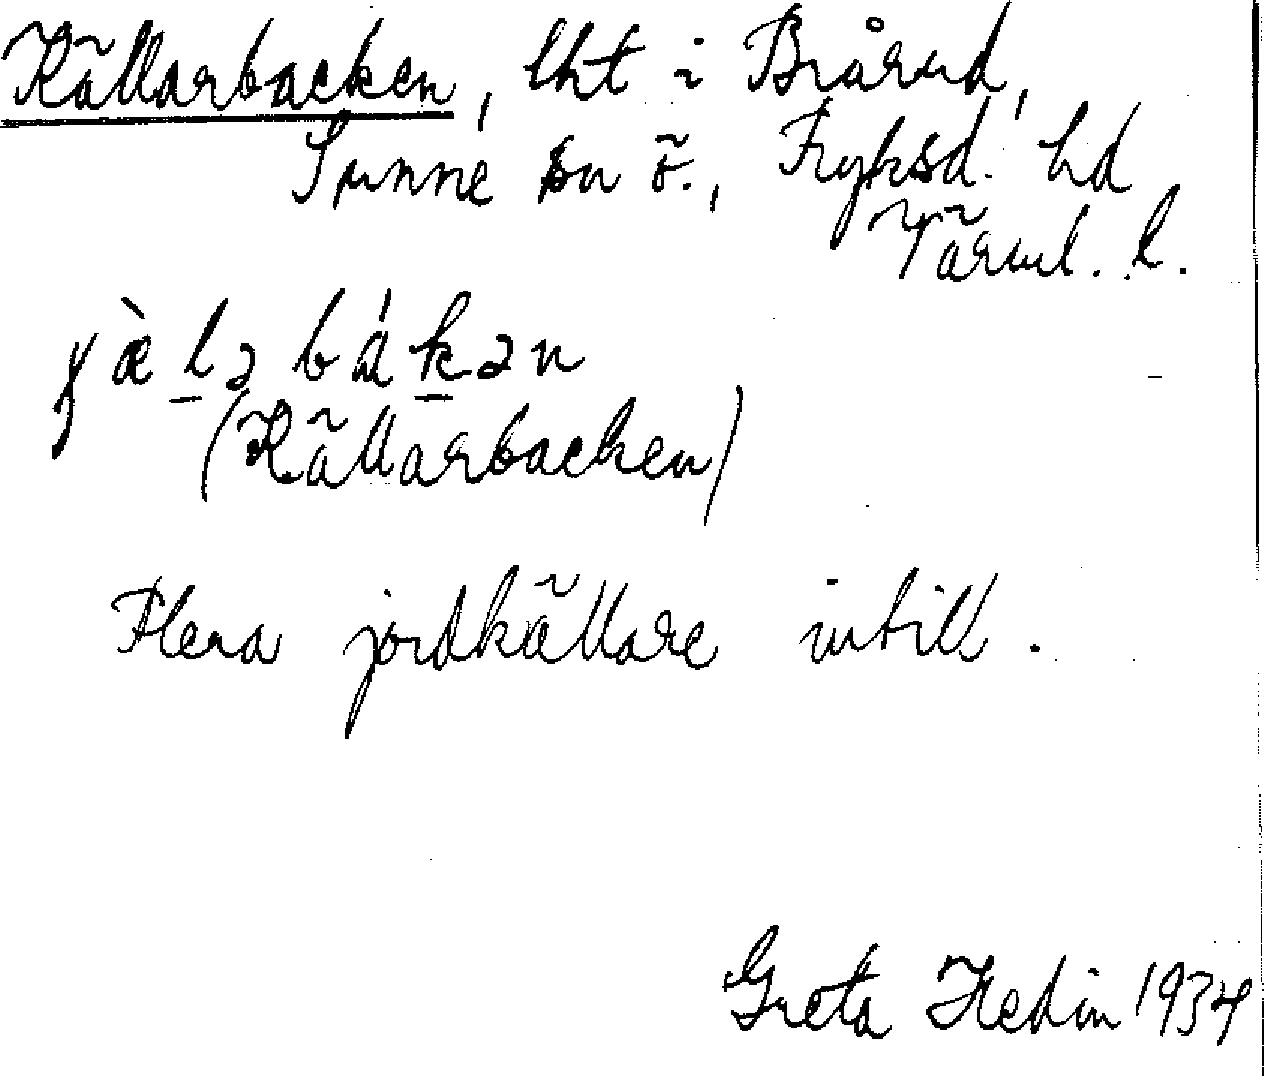 Källarbacken, lht i Brårud,
Sunne sn ö., Fryksd. hd
Värml. l.
ɣæ̀l̲ə bák̲ən
(Källarbacken)
Flera jordkällare intill.
Greta Hedin 1934